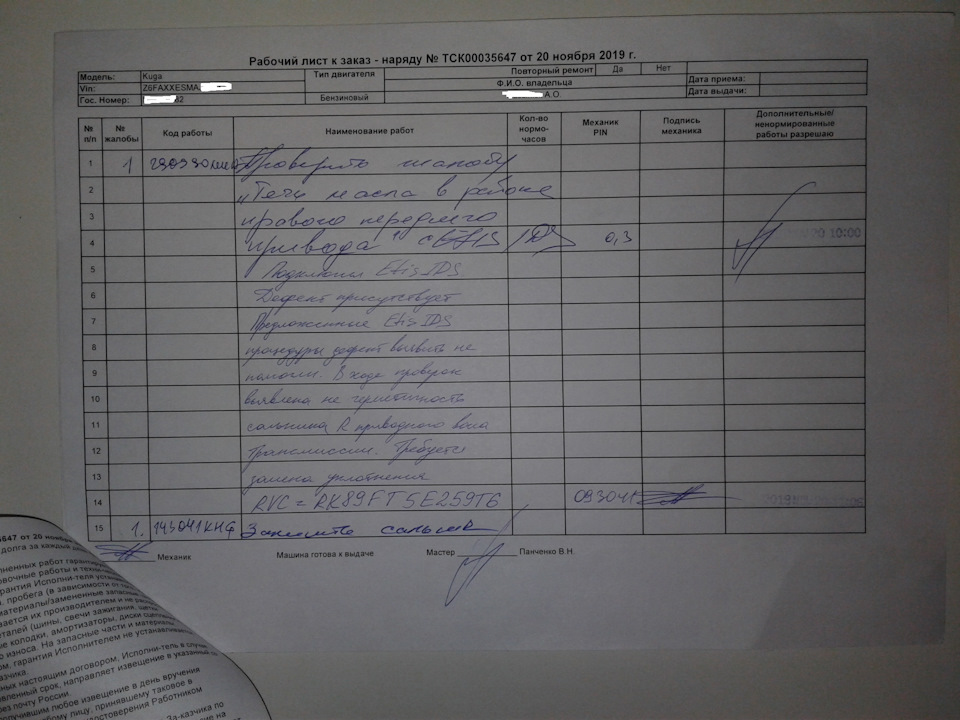 Рабочий лист к заказ - наряду № ТСК00035647 от 20 ноября 2019 г.
Модель: Kuga Тип двигателя Повторный ремонт Да Нет
Vin: Z6FAXXESMA Ф.И.О. владельца Дата приема:
Гос. Номер: 82 Бензиновый А.О. Дата выдачи:
№ п/п № жалобы Код работы Наименование работ Кол-во нормо-часов Механик PIN Подпись механика Дополнительные/ненормированные работы разрешаю
1 1 Проверить жалобу
2 "Течь масла в районе
3 правого переднего
4 привода" с ETIS/IDS 0,3 20 10:00
5 Подключил Etis IDS
6 Дефект присутствует
7 Предложенные Etis IDS
8 процедуры дефект выявить не
9 помогли. В ходе проверок
10 выявлена не герметичность
11 сальника R приводного вала
12 трансмиссии. Требуется
13 замена уплотнения
14 RVC = RK89FT5E259T6 093041
15 1. 143041КНФ Заменить сальник
Механик Машина готова к выдаче Мастер Панченко В.Н.
5647 от 20 нояб
долга за каждый
ненных работ гарантир
евочные работы и техни
арантия Исполнителя уста
пробега (в зависимости от
материалы/замененные запасные
вается их производителем и не ра
еталей (шины, свечи зажигания, щетк
ые колодки, амортизаторы, диски сцеплен
о износа. На запасные части и материалы
ом, гарантия Исполнителем не устанавлива
азчика.
ных настоящим договором, Исполни-тель в случа
вленный срок, направляет извещение в указанный
ез почту России.
получившим любое извещение в день вручения
бому лицу, принявшему таковое в
удостоверения Работником
За-казчика по